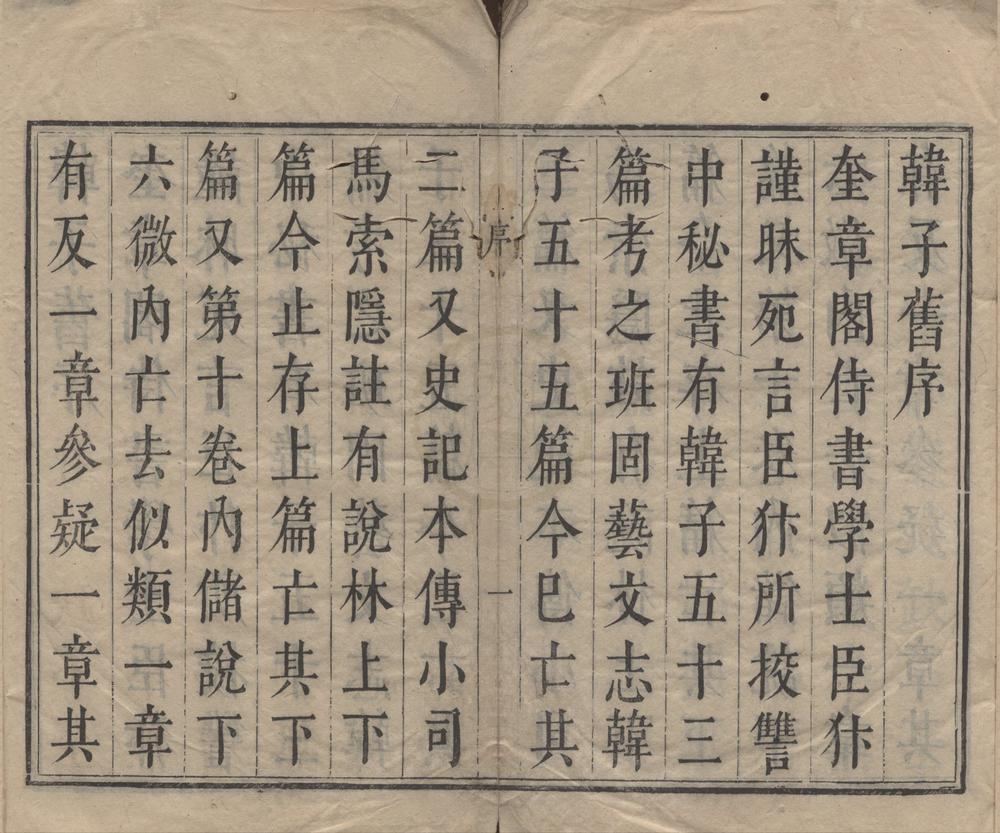 韓子舊序
奎章閣侍書學士臣犿
謹昧死言臣犿所挍讐
中秘書有韓子五十三
篇考之班固藝文志韓
子五十五篇今巳亡其
序 一
二篇又史記本傳小司
馬索隱註有說林上下
篇今止存上篇亡其下
篇又第十卷內儲說下
六微內亡去似類一章
有反一章參疑一章其